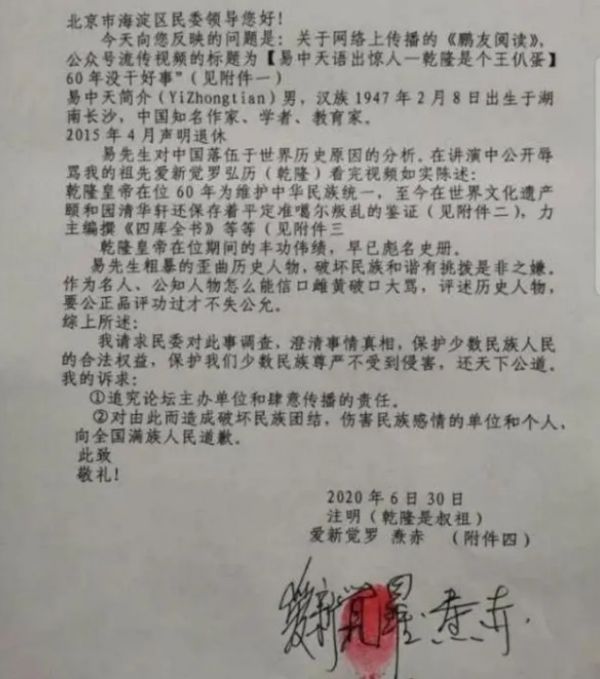 北京市海淀区民委领导您好！
今天向您反映的问题是：关于网络上传播的《鹏友阅读》，
公众号流传视频的标题为【易中天语出惊人—乾隆是个王仈蛋】
60年没干好事”（见附件一）
易中天简介（YiZhongtian）男，汉族1947年2月8日出生于湖
南长沙，中国知名作家、学者、教育家。
2015年4月声明退休
易先生对中国落伍于世界历史原因的分析。在讲演中公开辱
骂我的祖先爱新觉罗弘历（乾隆）看完视频如实陈述：
乾隆皇帝在位60年为维护中华民族统一，至今在世界文化遗产
颐和园清华轩还保存着平定准噶尔叛乱的鉴证（见附件二），力
主编撰《四库全书》等等（见附件三
乾隆皇帝在位期间的丰功伟绩，早已彪名史册。
易先生粗暴的歪曲历史人物，破坏民族和谐有挑拨是非之嫌。
作为名人、公知人物怎么能信口雌黄破口大骂，评述历史人物，
要公正品评功过才不失公允。
综上所述：
我请求民委对此事调查，澄清事情真相，保护少数民族人民
的合法权益，保护我们少数民族尊严不受到侵害，还天下公道。
我的诉求：
①追究论坛主办单位和肆意传播的责任。
②对由此而造成破坏民族团结，伤害民族感情的单位和个人，
向全国满族人民道歉。
此致
敬礼！
2020年6月30日
注明（乾隆是叔祖）
爱新觉罗 焘赤 （附件四）
爱新觉罗·焘赤